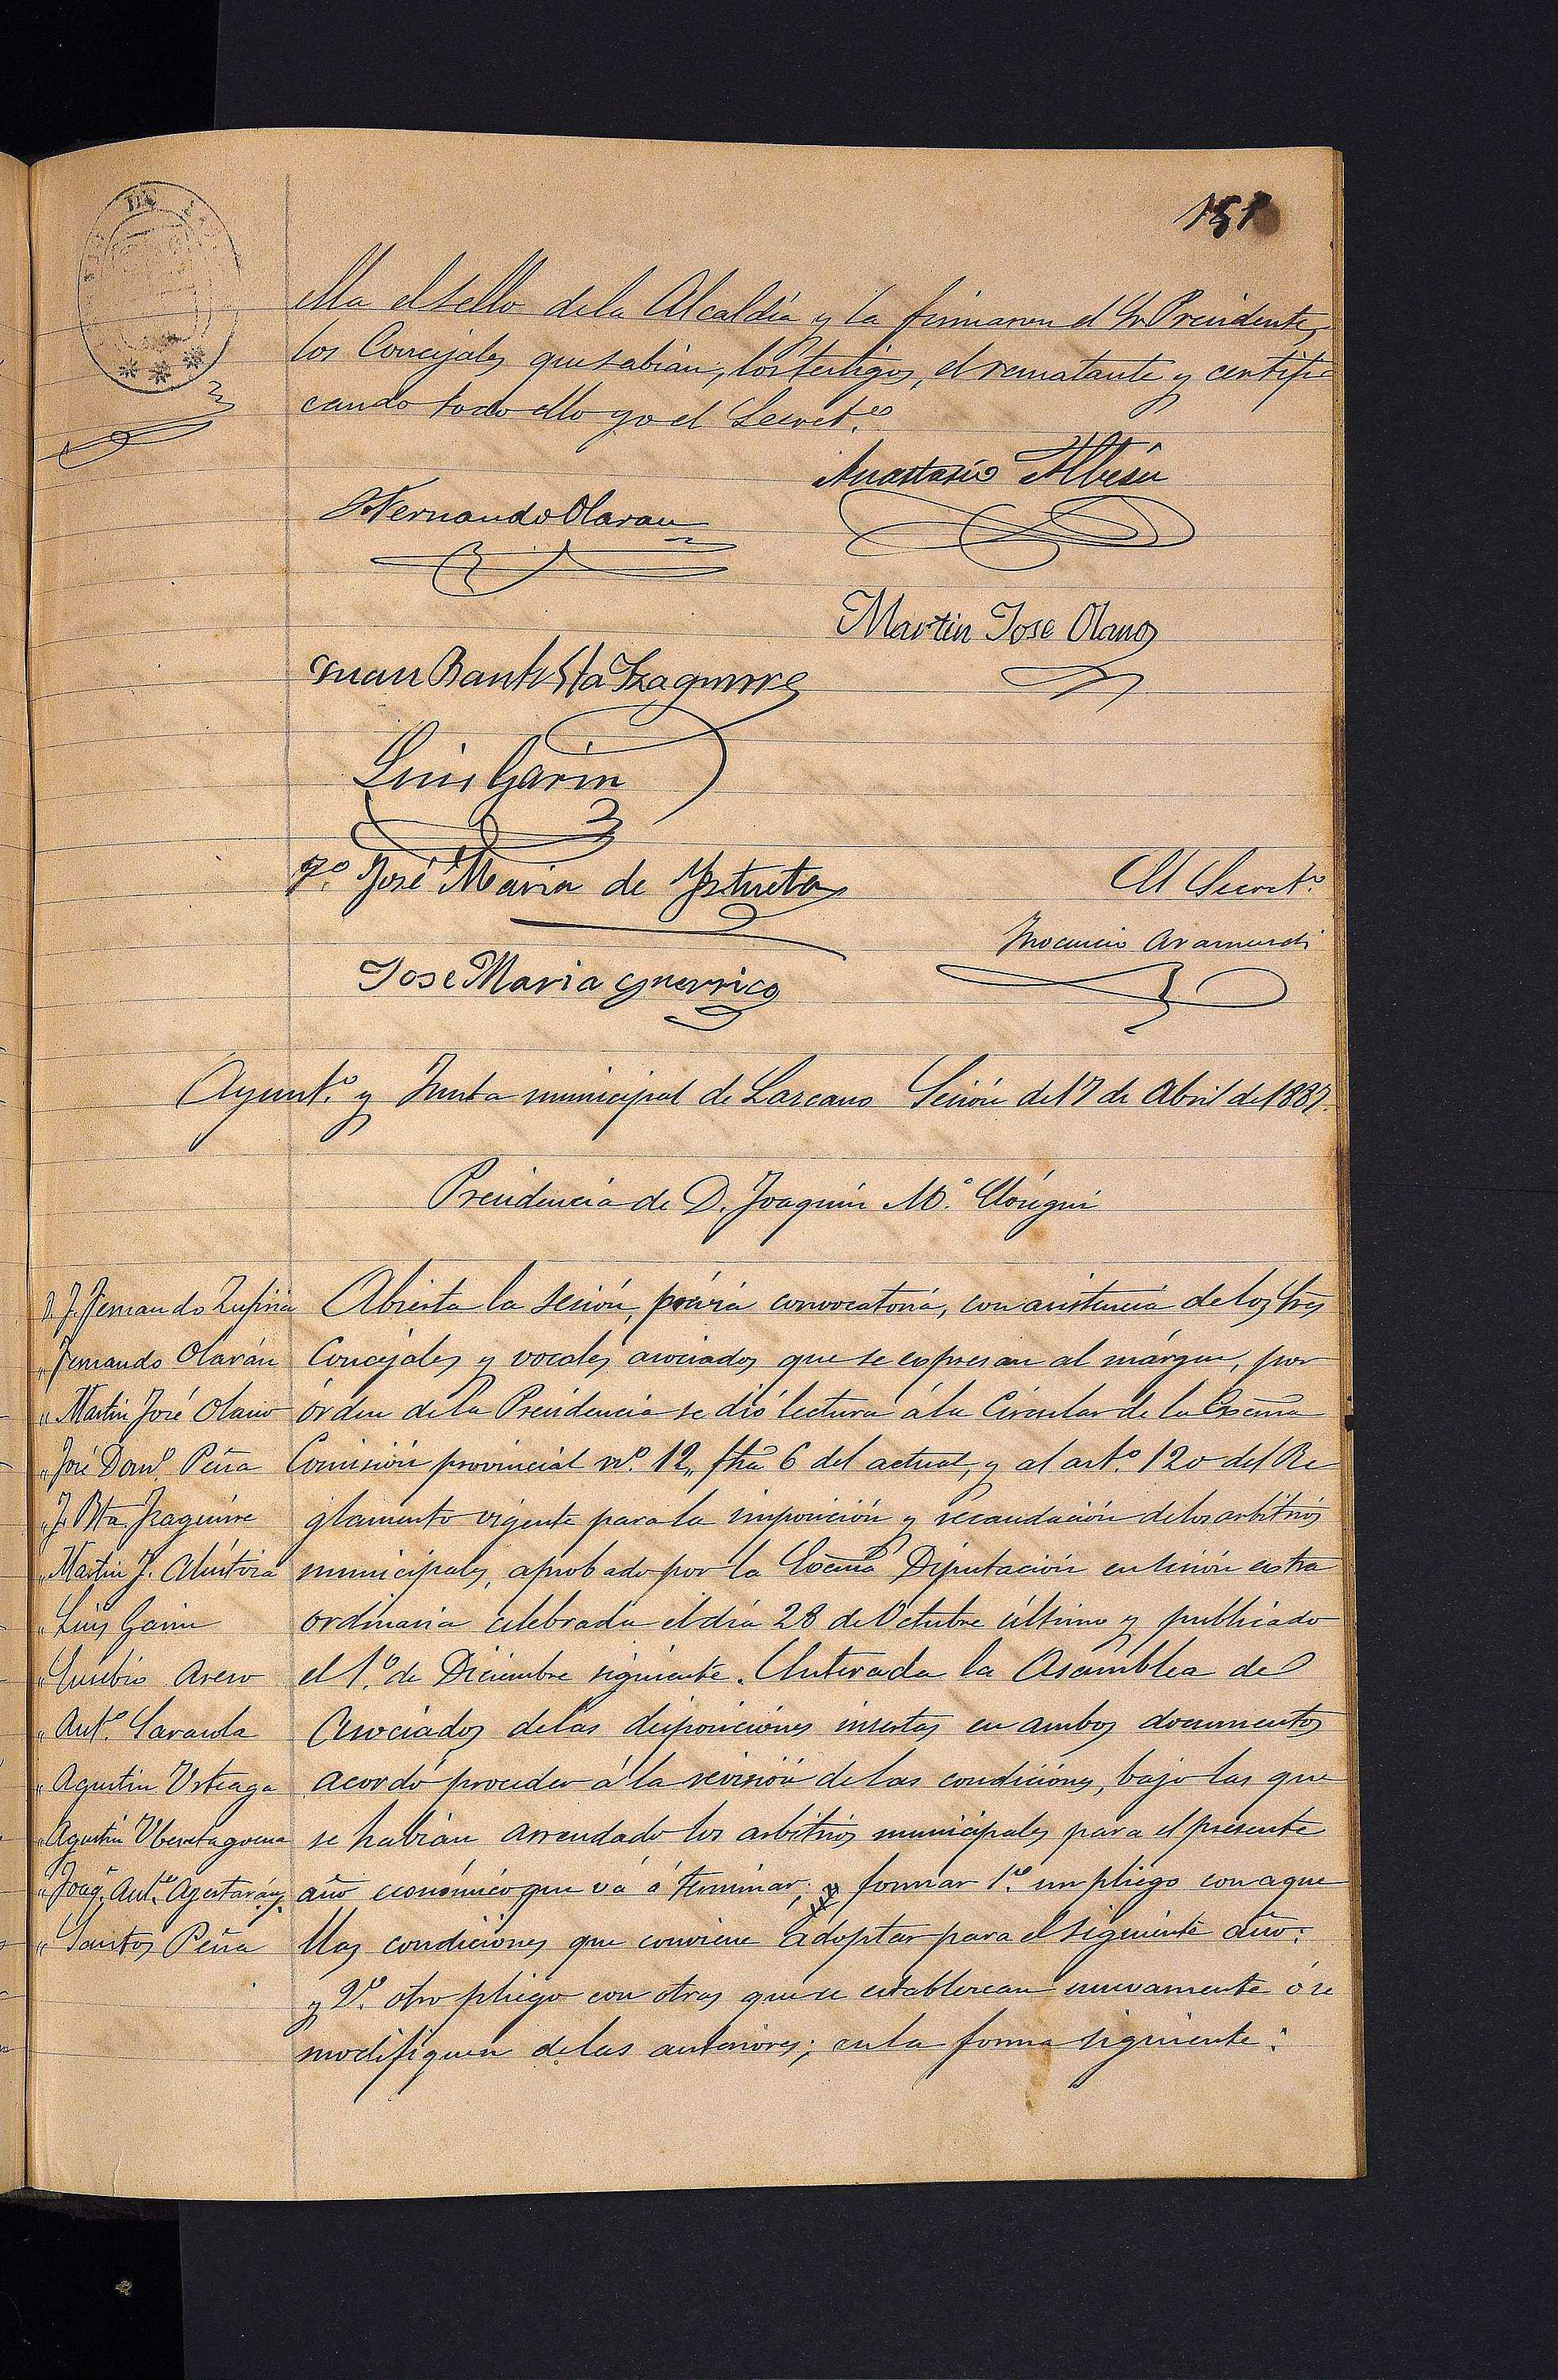 151
ella el sello de la Alcaldía y la firmaron el Sr Presidente,
los Concejales que sabian, los testigos, el rematante y certifi-
cando todo ello yo el Secret.º
Anastasio Albisu
Fernando Olaran
Martin Jose Olano
Juan Bautista Yzaguirre
Luis Garin
José Maria de Yztueta
El Secret.º
Inocencio Aramendi
Jose Maria Guerrico
Ayunt.º y Junta municipal de Lazcano Sesión del 7 de Abril de 1887.
Presidencia de D. Joaquín M.ª Elósegui
D. J. Fernando Zufiria
" Fernando Olarán
" Martin José Olano
" José Dom.º Peña
" J. Bta. Yzaguirre
" Martin J.
" Luis Garin
" Eusebio
" Ant.º Sarasola
" Agustin Urteaga
" Agustin
" Joaq.n Ant.º
" Santos Peña
Abierta la sesión, prévia convocatoria, con asistencia de los Sres
Concejales y vocales asociados que se espresan al márgen, por
órden de la Presidencia se dió lectura á la Circular de la Excma
Comisión provincial n.º 12,, fha 6 del actual, y al art.º 120 del Re
glamento vigente para la imposición y recaudación de los arbitrios
municipales, aprobado por la Excma Diputación en sesión extra
ordinaria celebrada el dia 28 de Octubre último y publicado
el 1.º de Diciembre siguiente. Enterada la Asamblea de
Asociados de las disposiciones insertas en ambos documentos
acordó proceder á la revisión de las condiciones, bajo las que
se habían arrendado los arbitrios municipales para el presente
año económico que vá á terminar; y formar 1.º un pliego con aque
llas condiciones que conviene adoptar para el siguiente año:
y 2.º otro pliego con otras que se establezcan nuevamente ó se
modifiquen de las anteriores; en la forma siguiente: